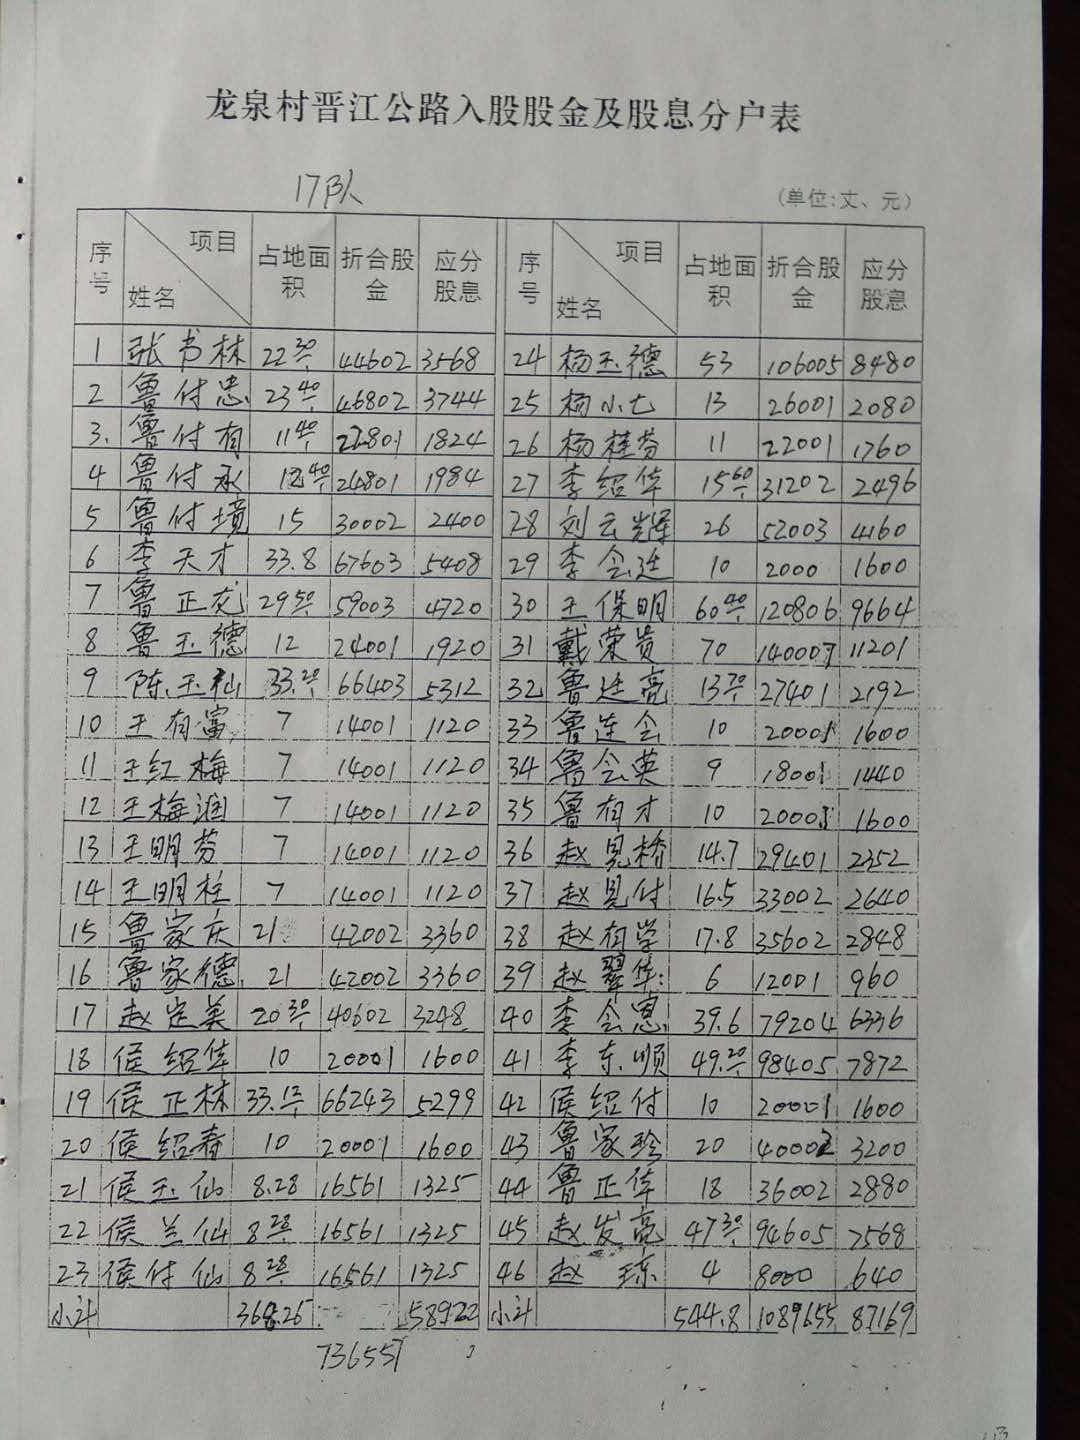 龙泉村晋江公路入股股金及股息分户表
17队
(单位:丈、元)
序号 项目 姓名 占地面积 折合股金 应分股息 序号 项目 姓名 占地面积 折合股金 应分股息
1 张书林 22.30 44602 3568 24 杨玉德 53 106005 8480
2 鲁付忠 23.40 46802 3744 25 杨小七 13 26001 2080
3. 鲁付有 11.40 22801 1824 26 杨桂芬 11 22001 1760
4 鲁付承 12.40 24801 1984 27 李绍华 15.60 31202 2496
5 鲁付境 15 30002 2400 28 刘云辉 26 52003 4160
6 李天才 33.8 67603 5408 29 李会连 10 2000 1600
7 鲁正龙 29.50 59003 4720 30 王保明 60.40 120806 9664
8 鲁玉德 12 24001 1920 31 戴荣贵 70 140007 11201
9 陈玉仙 33.20 66403 5312 32 鲁连亮 13.70 27401 2192
10 王有富 7 14001 1120 33 鲁连会 10 20001 1600
11 王红梅 7 14001 1120 34 鲁会英 9 18001 1440
12 王梅润 7 14001 1120 35 鲁有才 10 20001 1600
13 王明芬 7 14001 1120 36 赵见桥 14.7 29401 2352
14 王明柱 7 14001 1120 37 赵见付 16.5 33002 2640
15 鲁家庆 21 42002 3360 38 赵有学 17.8 35602 2848
16 鲁家德 21 42002 3360 39 赵翠华 6 12001 960
17 赵定美 20.30 40602 3248 40 李会恩 39.6 79204 6336
18 侯绍华 10 20001 1600 41 李东顺 49.20 98405 7872
19 侯正林 33.12 66243 5299 42 侯绍付 10 20001 1600
20 侯绍春 10 20001 1600 43 鲁家珍 20 40002 3200
21 侯玉仙 8.28 16561 1325 44 鲁正华 18 36002 2880
22 侯兰仙 8.28 16561 1325 45 赵发亮 47.30 94605 7568
23 侯付仙 8.28 16561 1325 46 赵琼 4 8000 640
小计 368.25 58922 小计 544.8 1089655 87169
736557